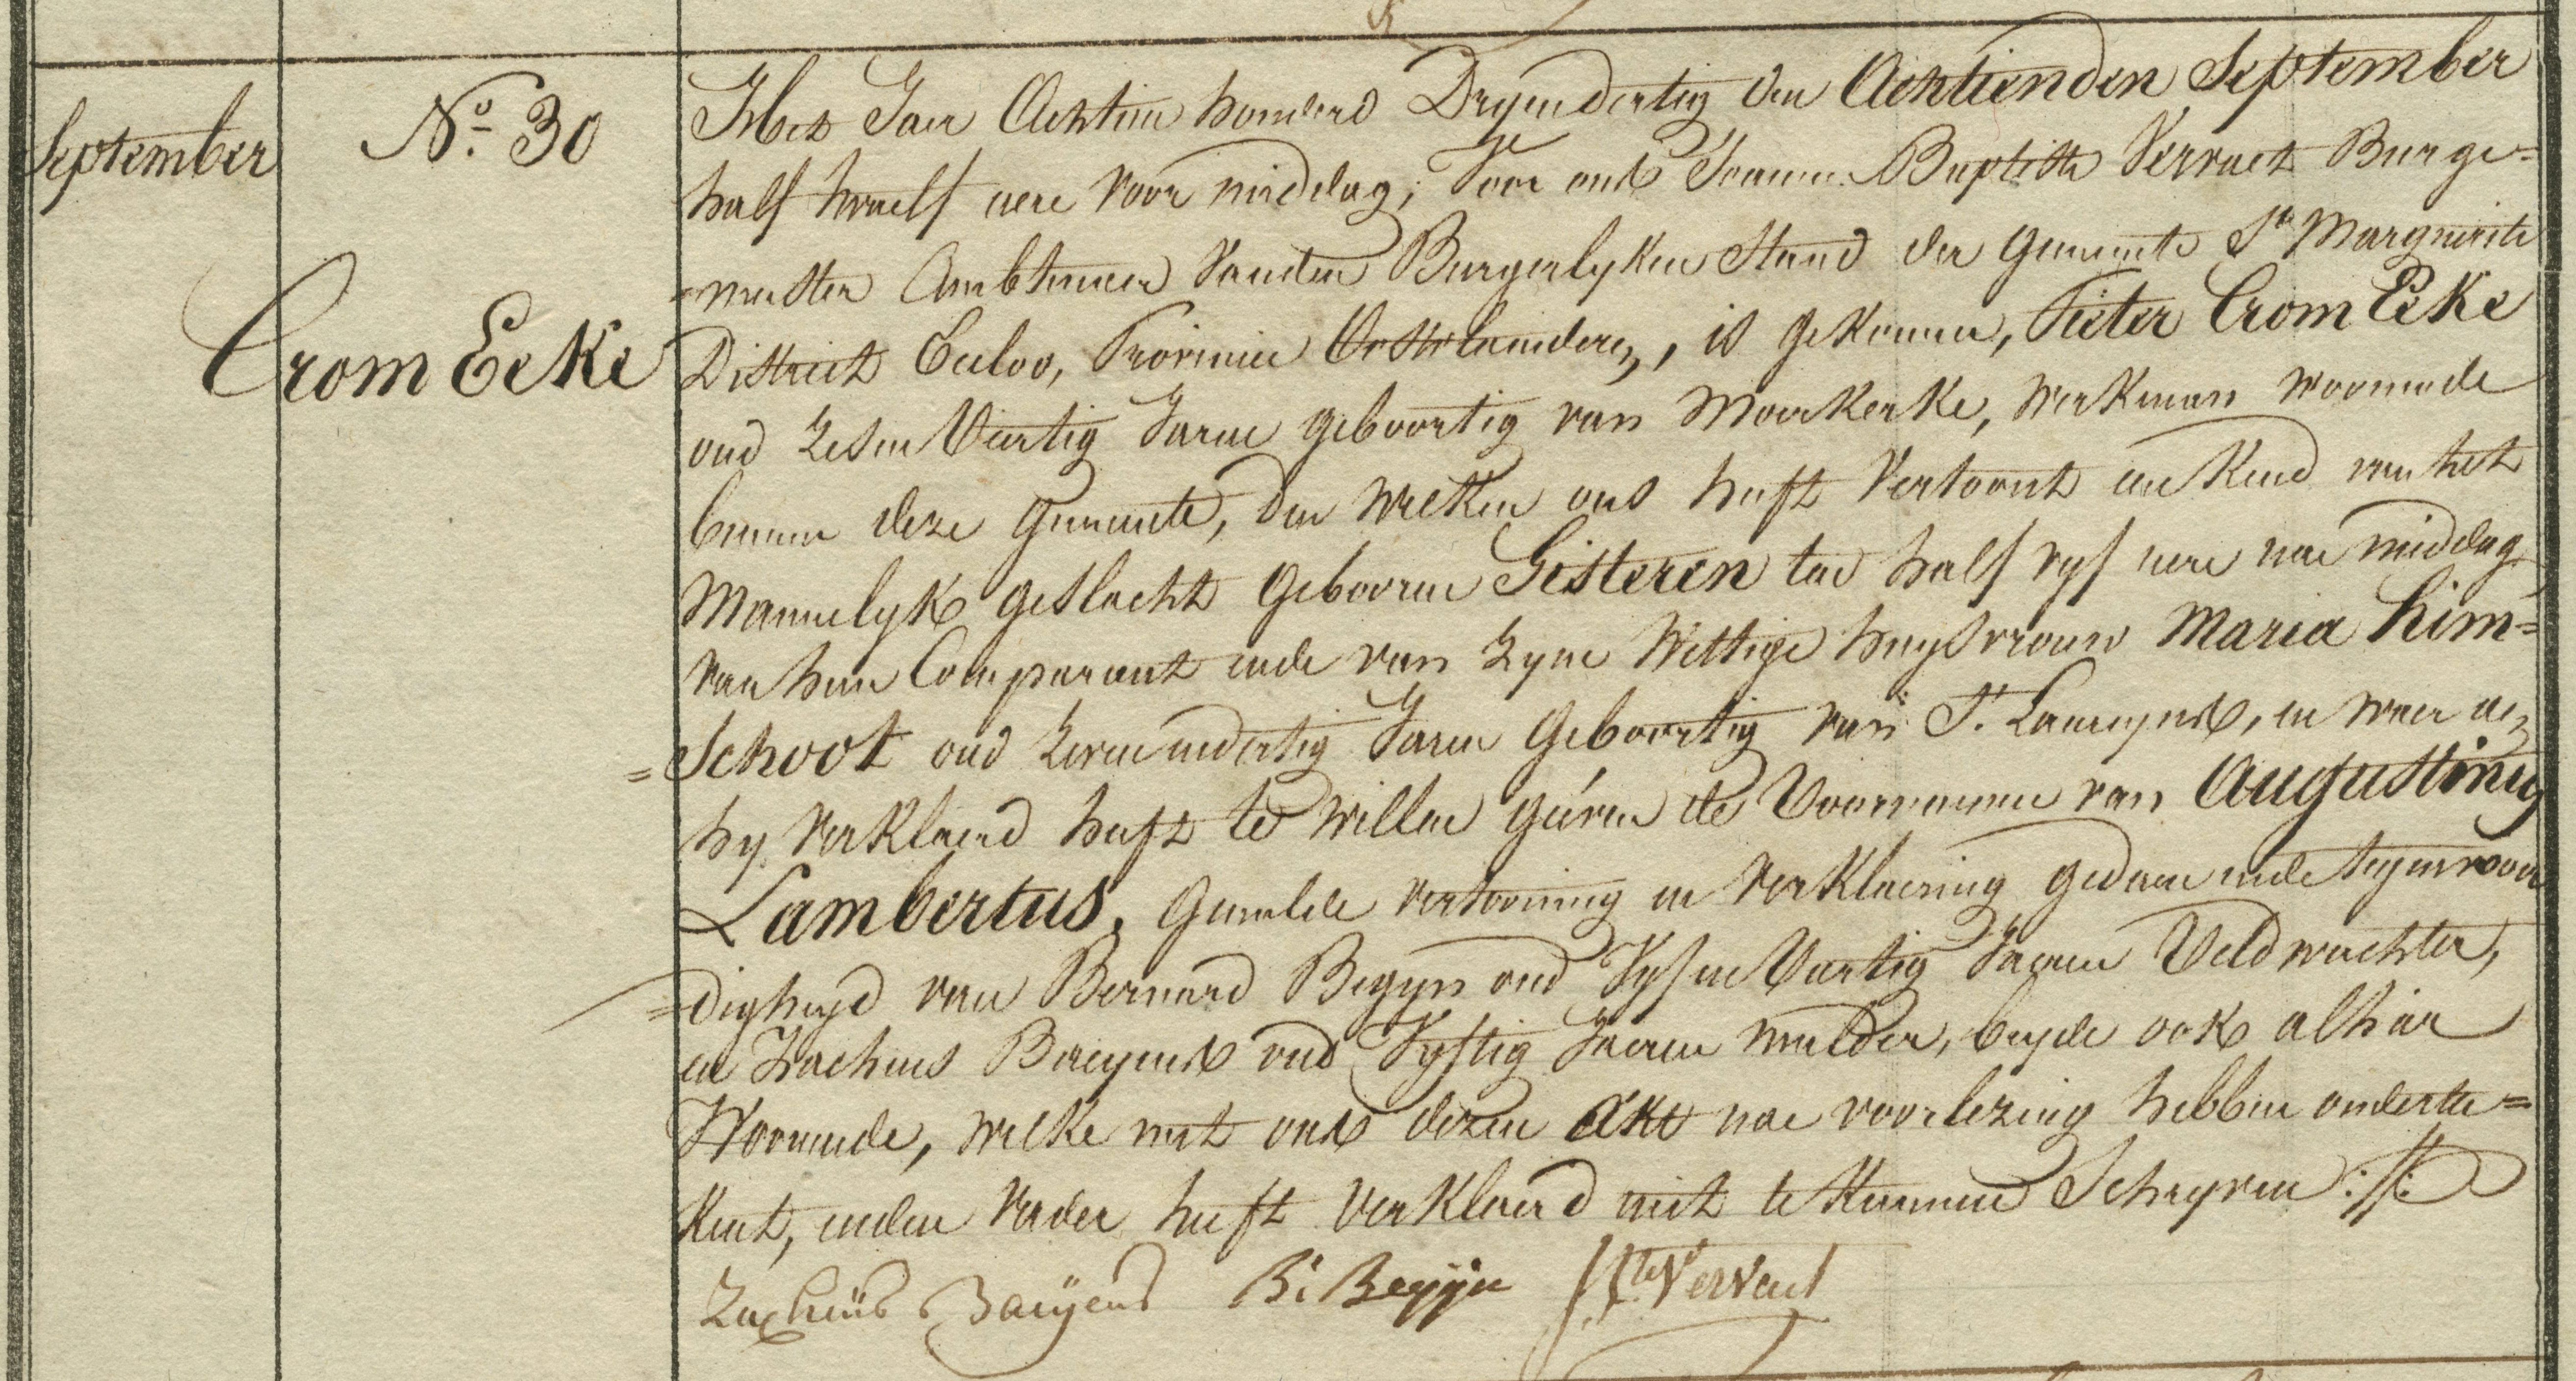 September
N.º 30
Crom Ecke
Ihet Jaer Achtien honderd Dryendertig den Achtienden September
half twaelf uere voor middag, Voor ons Joannes Baptiste Vervaet Burge=
=mester Ambtenaer Vanden Burgerlyken Stand der Gemeente Ste Marguerite
District Eecloo, Provincie Oostvlaenderen, is gekomen, Pieter Crom Ecke
oud Zesen Viertig Jaren geboortig van Moerkerke, Werkman woonende
binnen deze Gemeente, den Welken ons heeft Vertoont een Kind van het
Mannelyk geslacht Gebooren Gisteren ten half vyf uere nae middag
van hem Comparant ende van Zyne Wettige huysvrouw Maria Lim=
=Schoot oud Zevenendertig Jaren Geboortig van St. Laureyns, en waer aen
hy Verklaerd heeft te willen géven de Voornamen van Augustinus
Lambertus, Gemelde vertooning en verklaering gedaen inde tegenwoor
=digheyd van Bernard Begyn oud Vyf en Viertig Jaeren Veldwachter,
en Zacheus Baeyens oud Vyftig Jaeren mulder, beyde ook alhier
Woonende, welke met ons dezen Akt nae voorlezing hebben onderte=
Kent, enden Vader heeft Verklaerd niet te Kunnen Schryven ://:
Zacheüs Baeÿens B: Begÿn J Bte Vervaet